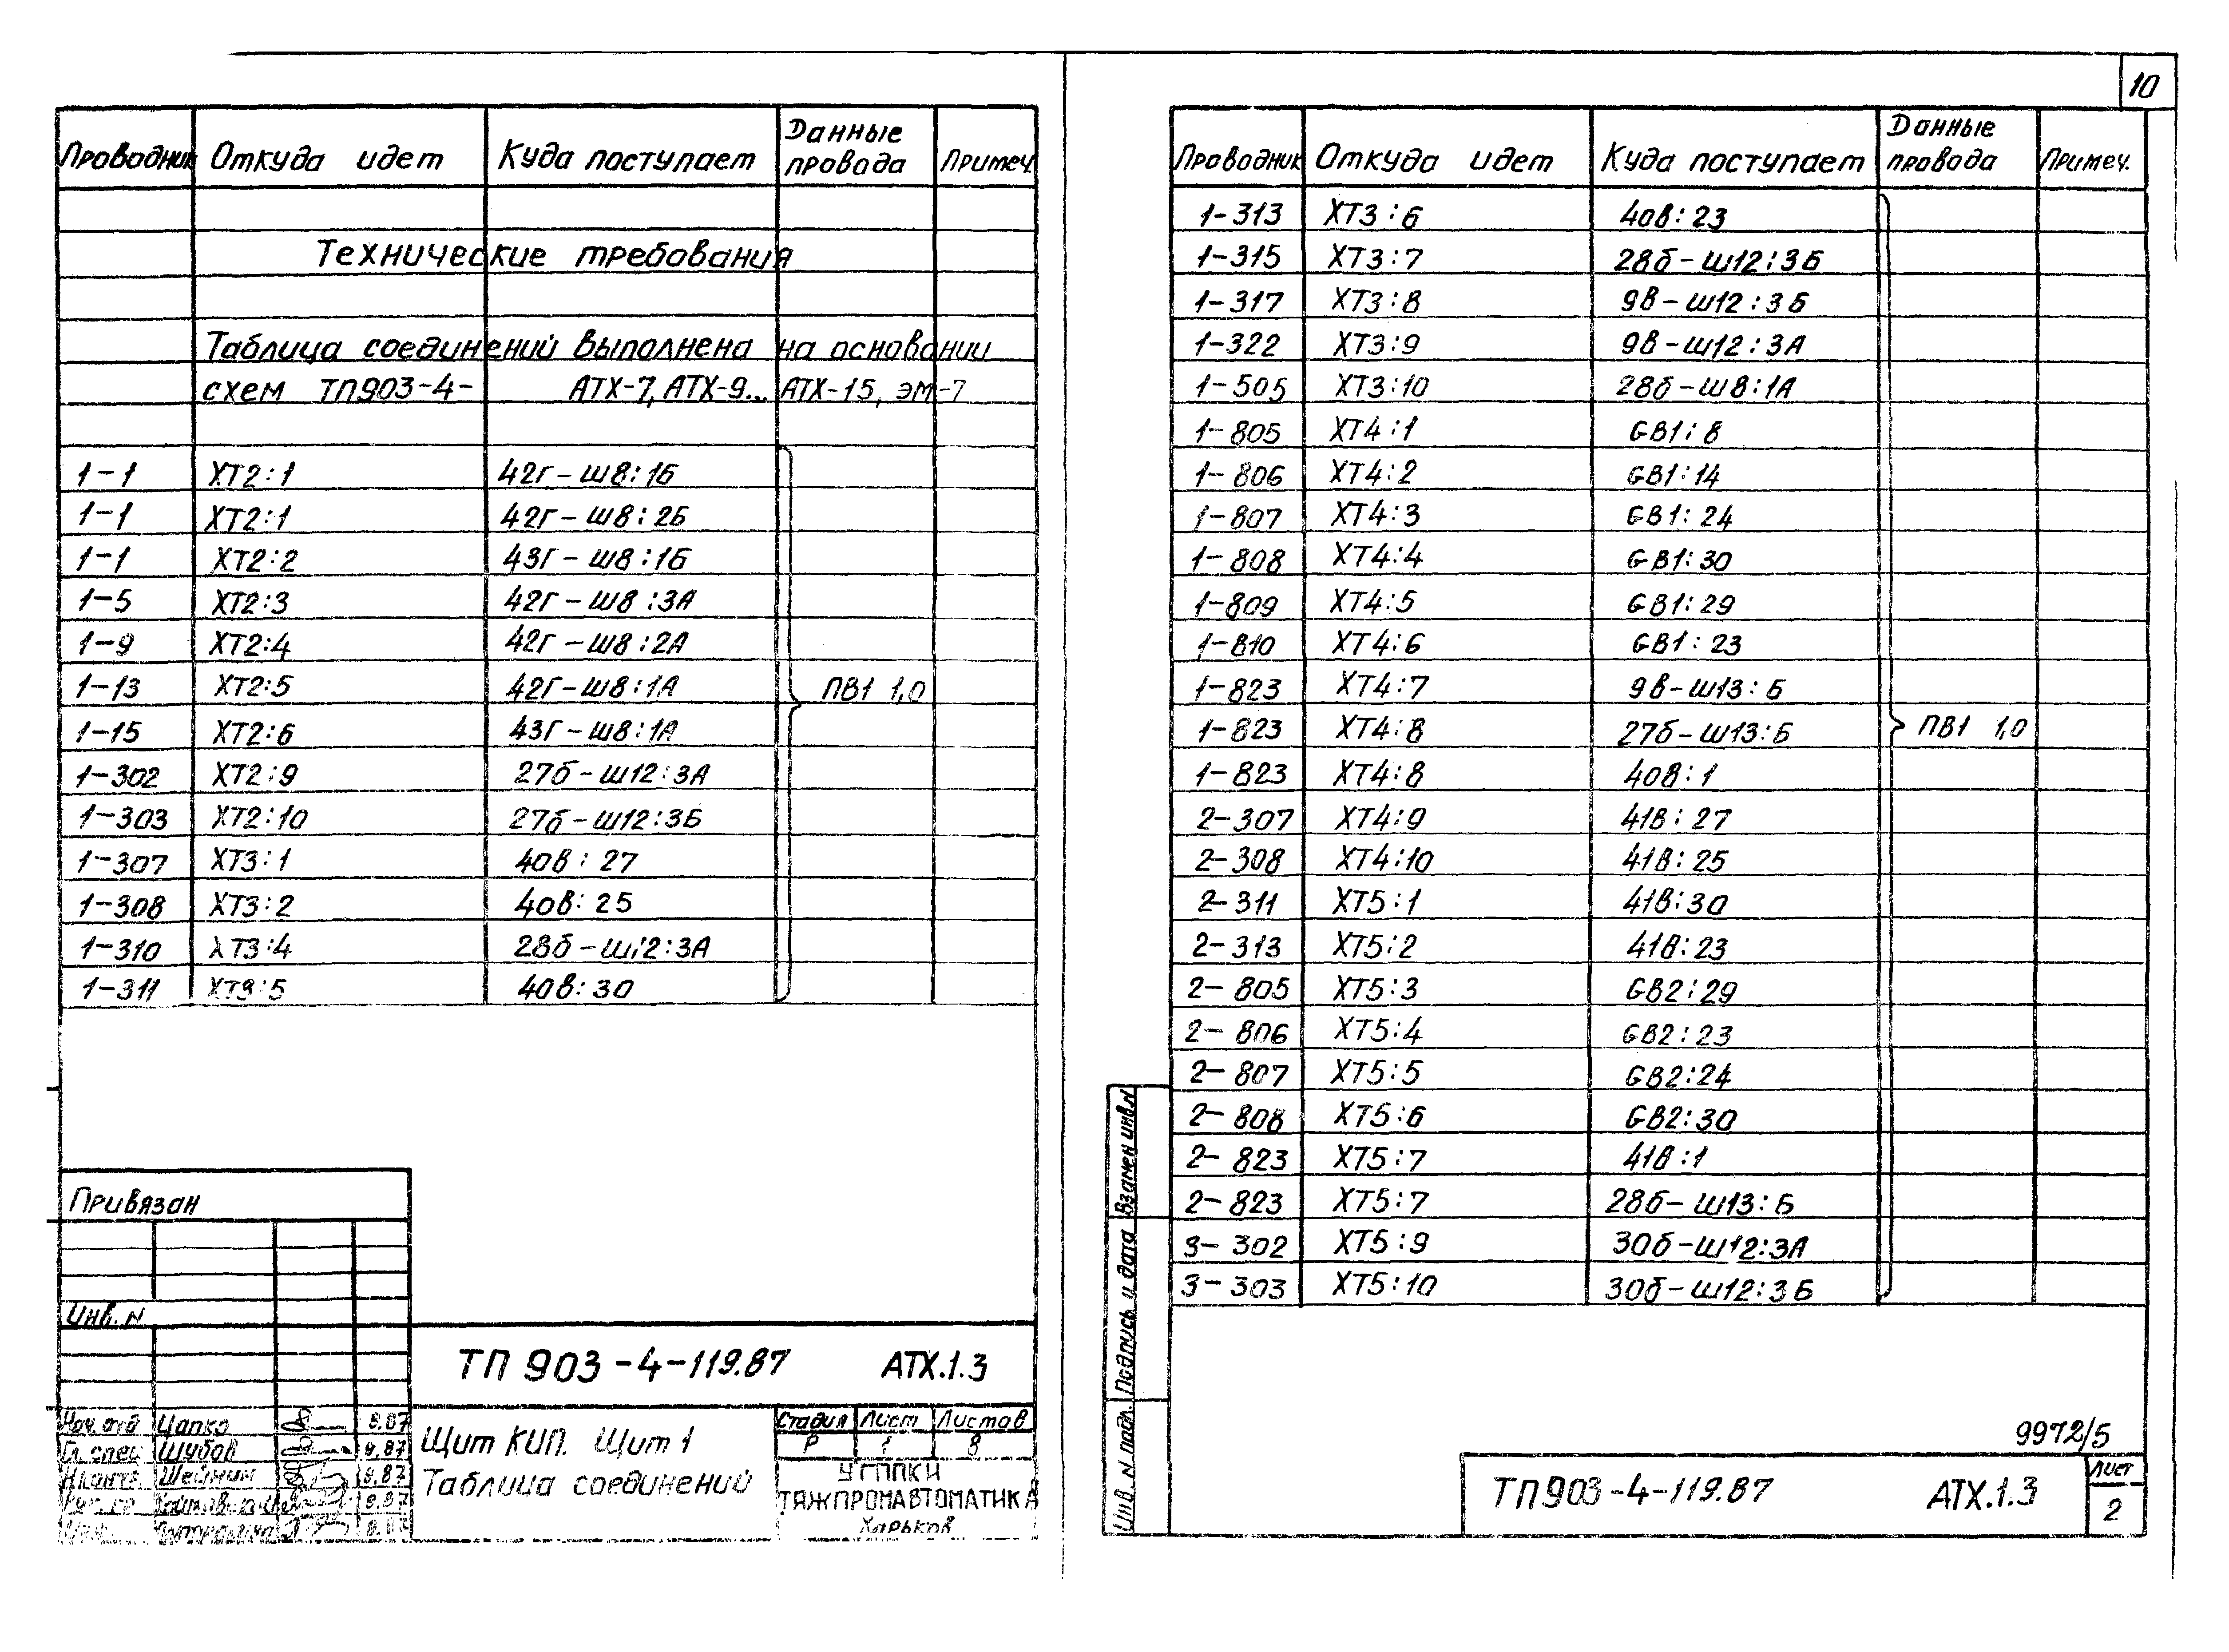 10
Проводник Откуда идет Куда поступает Данные провода Примеч.
Технические требования
Таблица соединений выполнена на основании
схем ТП903-4- АТХ-7, АТХ-9... АТХ-15, ЭМ-7
1-1 ХТ2:1 42Г-Ш8:1Б
1-1 ХТ2:1 42Г-Ш8:2Б
1-1 ХТ2:2 43Г-Ш8:1Б
1-5 ХТ2:3 42Г-Ш8:3А
1-9 ХТ2:4 42Г-Ш8:2А
1-13 ХТ2:5 42Г-Ш8:1А ПВ1 1,0
1-15 ХТ2:6 43Г-Ш8:1А
1-302 ХТ2:9 27б-Ш12:3А
1-303 ХТ2:10 27б-Ш12:3Б
1-307 ХТ3:1 40В:27
1-308 ХТ3:2 40В:25
1-310 ХТ3:4 28б-Ш12:3А
1-311 ХТ3:5 40В:30
Привязан
Инв. N
ТП 903-4-119.87 АТХ.1.3
Нач. отд Цапко 9.87
Гл. спец Шубов 9.87
Н.контр. Шейнин 9.87
Рук. гр. 9.87
Щит КИП. Щит 1
Таблица соединений
Стадия Лист Листов
Р 1 8
УГППКИ
ТЯЖПРОМАВТОМАТИКА
Харьков
Проводник Откуда идет Куда поступает Данные провода Примеч.
1-313 ХТ3:6 40В:23
1-315 ХТ3:7 28б-Ш12:3Б
1-317 ХТ3:8 9В-Ш12:3Б
1-322 ХТ3:9 9В-Ш12:3А
1-505 ХТ3:10 28б-Ш8:1А
1-805 ХТ4:1 GB1:8
1-806 ХТ4:2 GB1:14
1-807 ХТ4:3 GB1:24
1-808 ХТ4:4 GB1:30
1-809 ХТ4:5 GB1:29
1-810 ХТ4:6 GB1:23
1-823 ХТ4:7 9В-Ш13:Б
1-823 ХТ4:8 27б-Ш13:Б ПВ1 1,0
1-823 ХТ4:8 40В:1
2-307 ХТ4:9 41В:27
2-308 ХТ4:10 41В:25
2-311 ХТ5:1 41В:30
2-313 ХТ5:2 41В:23
2-805 ХТ5:3 GB2:29
2-806 ХТ5:4 GB2:23
2-807 ХТ5:5 GB2:24
2-808 ХТ5:6 GB2:30
2-823 ХТ5:7 41В:1
2-823 ХТ5:7 28б-Ш13:Б
3-302 ХТ5:9 30б-Ш12:3А
3-303 ХТ5:10 30б-Ш12:3Б
Взамен инв.N
Подпись и дата
Инв. N подл.
9972/5
ТП903-4-119.87 АТХ.1.3
Лист
2